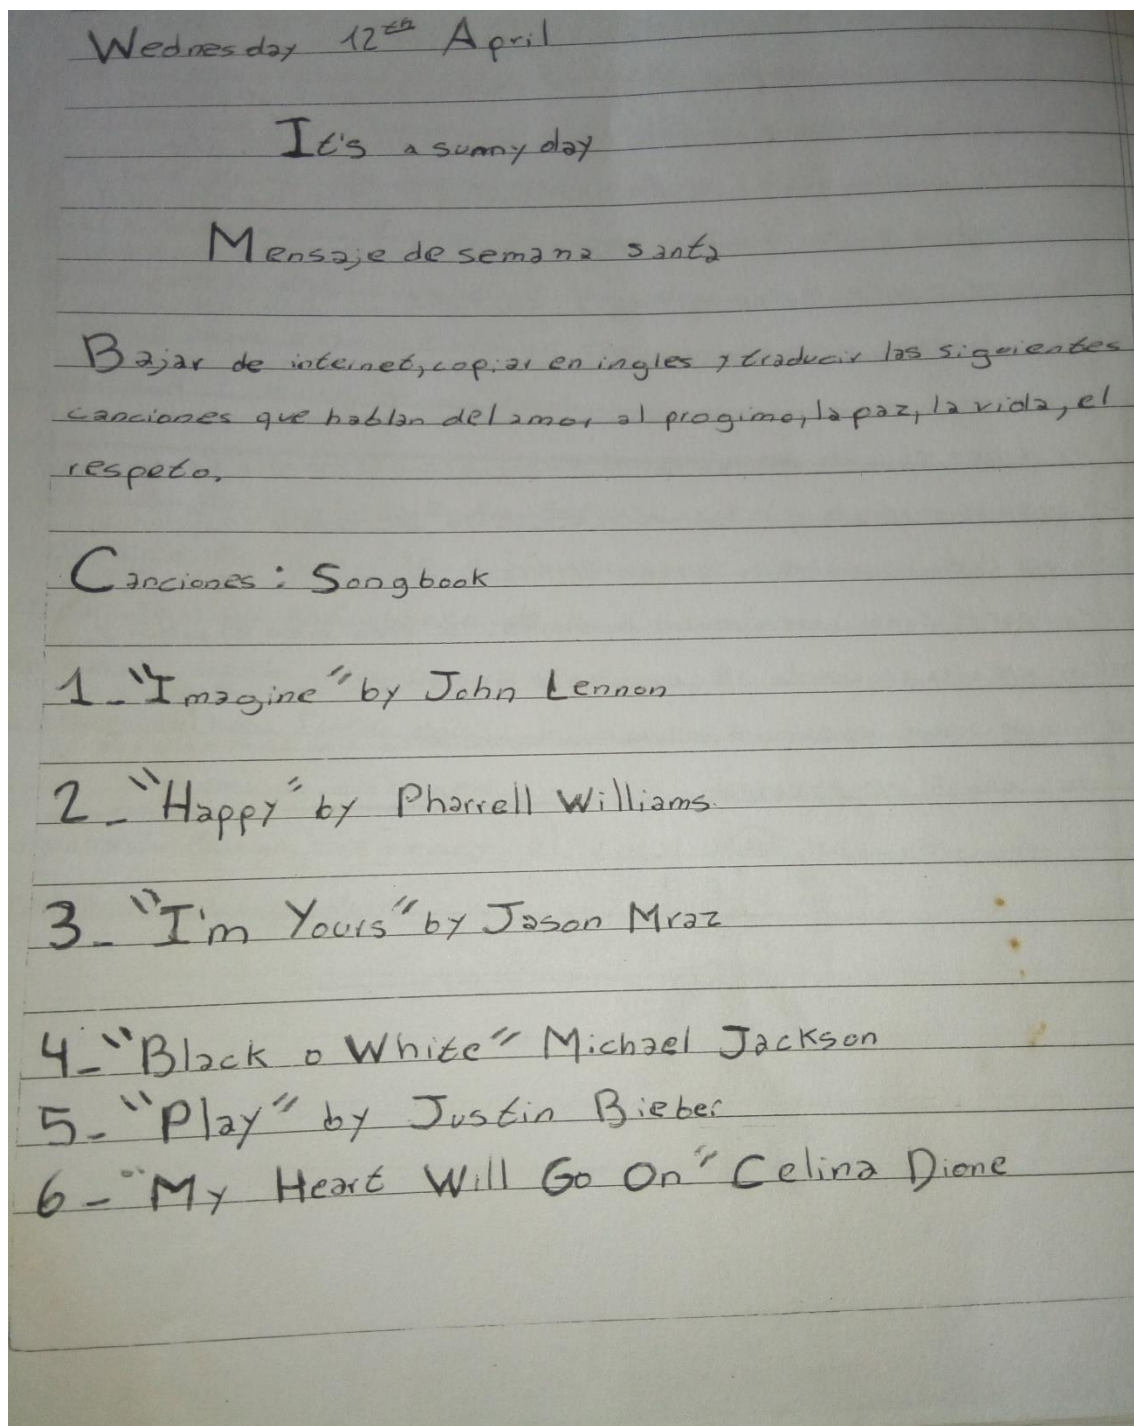 Wednesday 12th April
It's a sunny day
Mensaje de semana santa
Bajar de internet, copiar en ingles y traducir las siguientes
canciones que hablan del amor al progimo, la paz, la vida, el
respeto.
Canciones: Songbook
1- "Imagine" by John Lennon
2- "Happy" by Pharrell Williams.
3- "I'm Yours" by Jason Mraz
4- "Black o White" Michael Jackson
5- "Play" by Justin Bieber
6- "My Heart Will Go On" Celina Dione